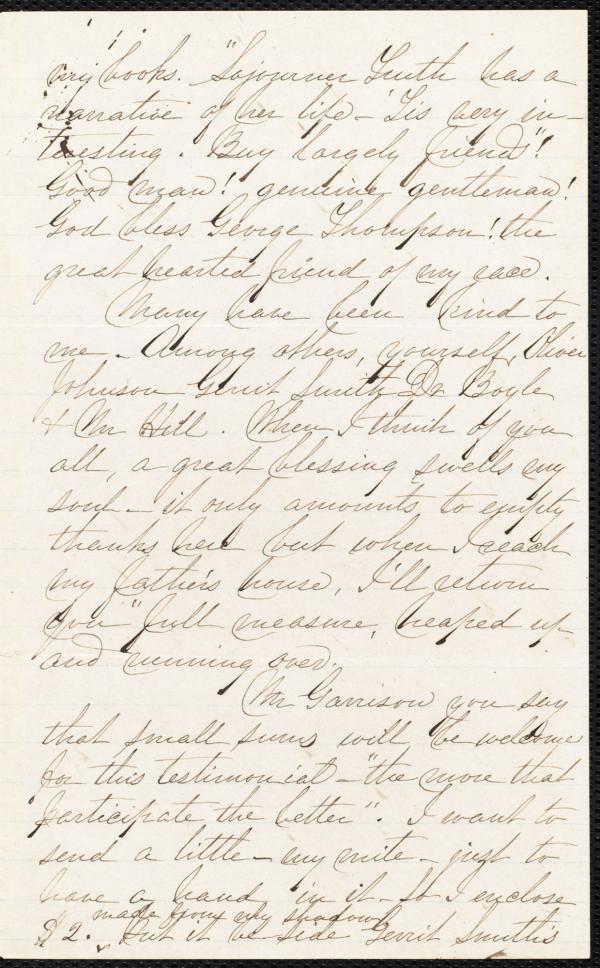 my books. "Sojourner Truth has a
narrative of her life - 'Tis very in-
teresting. Buy largely friends"!
Good man! genuine gentleman!
God bless George Thompson! the
great hearted friend of my race.
Many have been kind to
me - Among others, yourself, Oliver
Johnson Gerrit Smith, Dr Boyle
& Mr Hill. When I think of you
all, a great blessing swells my
soul - it only amounts to empty
thanks here but when I reach
my father's house, I'll return
you "full measure, heaped up
and running over.
Mr Garrison you say
that small sums will be welcome
for this testimonial - "the more that
participate the better". I want to
send a little - my mite - just to
have a hand in it - So I enclose
made from my shadow
$2. Put it be side Gerrit Smith's